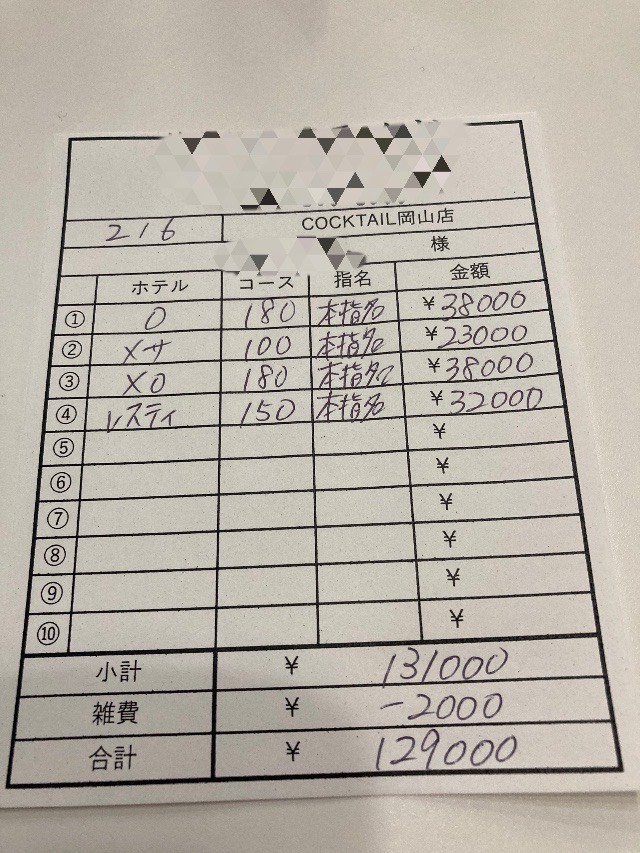 216 COCKTAIL岡山店
様
ホテル コース 指名 金額
① O 180 本指名 ¥38000
② メサ 100 本指名 ¥23000
③ XO 180 本指名 ¥38000
④ レスティ 150 本指名 ¥32000
⑤ ¥
⑥ ¥
⑦ ¥
⑧ ¥
⑨ ¥
⑩ ¥
小計 ¥ 131000
雑費 ¥ -2000
合計 ¥ 129000